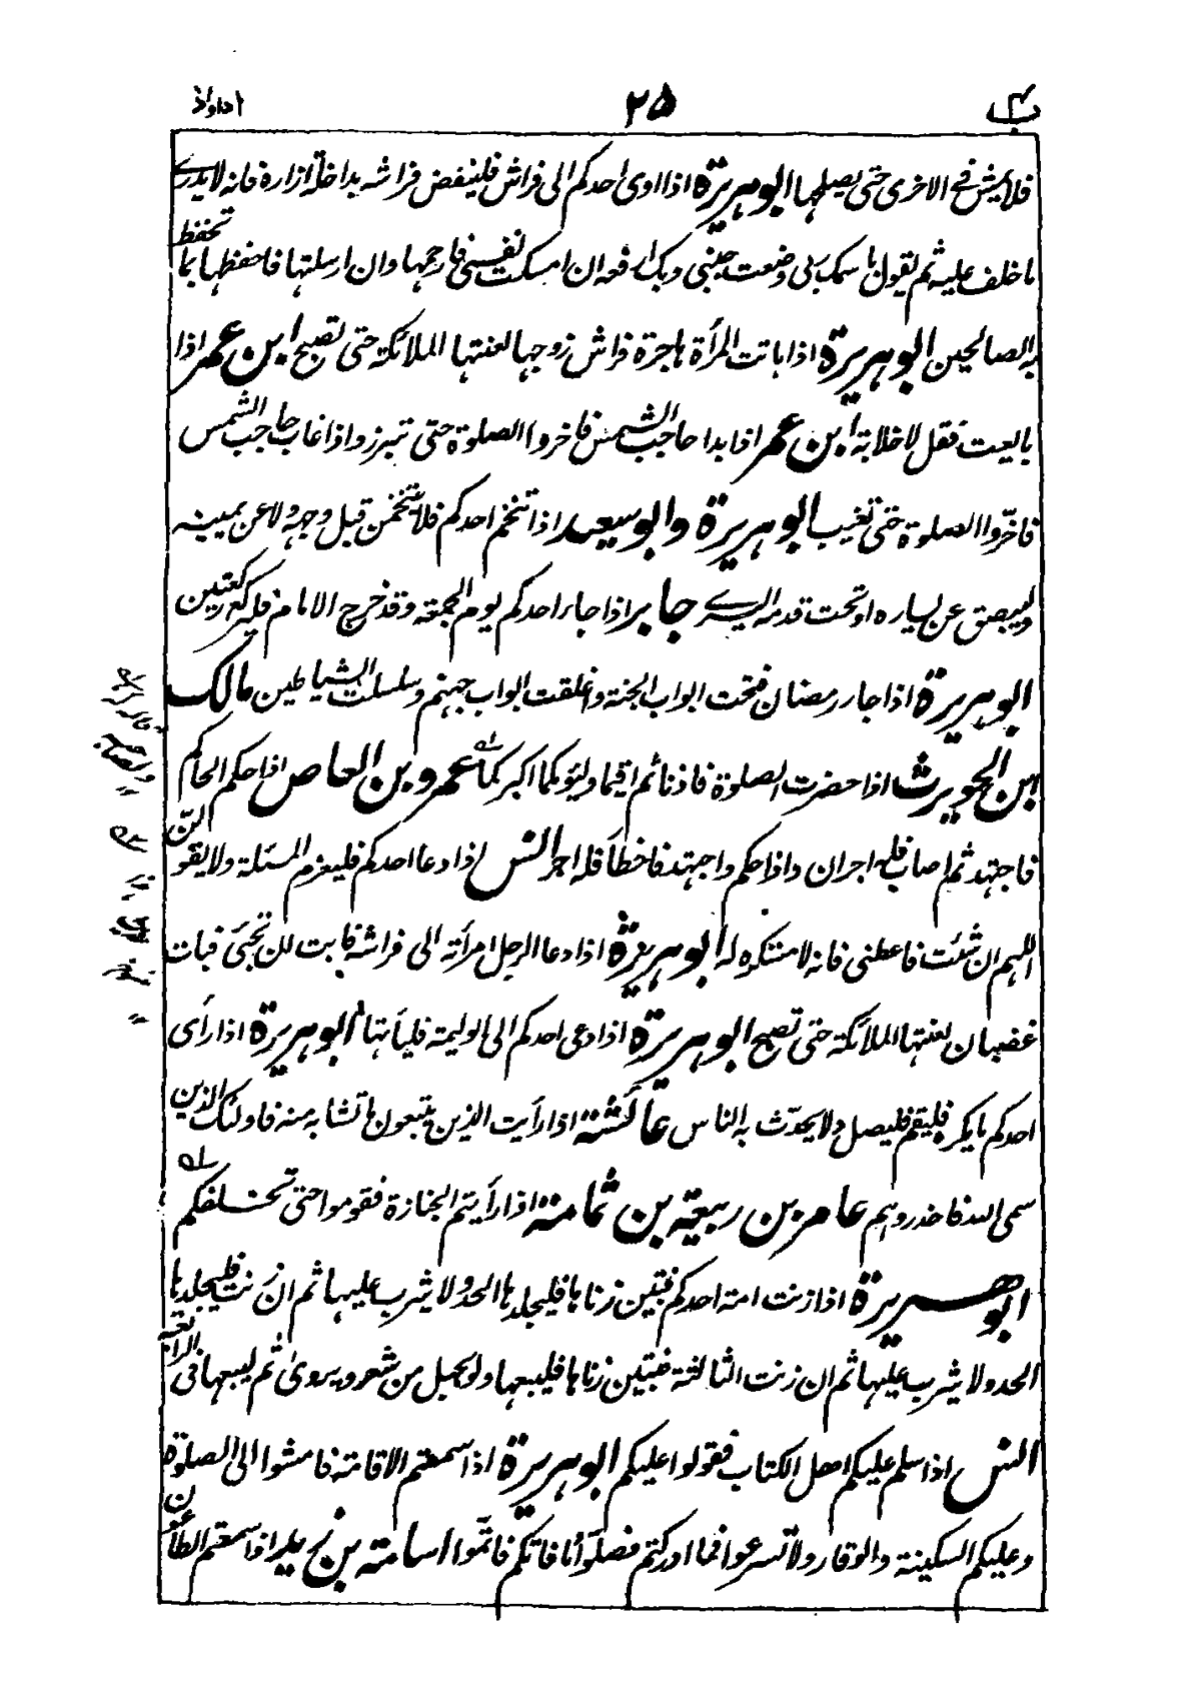 ٢٥
فلا يمش فى الاخرى حتى يصلحها ابوهريرة اذا اوى احدكم الى فراش فلينفض فراشه بداخلة ازاره فانه لا يدرے
ما خلف عليه ثم يقول باسمك ربى وضعت جنبى وبك ارفعه ان امسكت نفسى فارحمها وان ارسلتها فاحفظها بما تحفظ
به الصالحين ابوهريرة اذا باتت المرأة هاجرة فراش زوجها لعنتها الملائكة حتى تصبح ابن عمر اذا
بايعت فقل لاخلابة ابن عمر اذا بدا حاجب الشمس فاخروا الصلوة حتى تبرز واذا غاب حاجب الشمس
فاخّروا الصلوة حتى تغيب ابوهريرة وابوسعيد اذا تنخم احدكم فلا يتنخمن قبل وجهه ولا عن يمينه
وليبصق عن يساره او تحت قدمه اليسرے جابر اذا جاء احدكم يوم الجمعة وقد خرج الامام فليركع ركعتين
ابوهريرة اذا جاء رمضان فتحت ابواب الجنة وغلقت ابواب جهنم وسلسلت الشياطين مالك
ابن الحويرث اذا حضرت الصلوة فاذنا ثم اقيما وليؤمكما اكبركما عمرو بن العاص اذا حكم الحاكم
فاجتهد ثم اصاب فله اجران واذا حكم واجتهد فاخطأ فله اجر انس اذا دعا احدكم فليعزم المسئلة ولا يقولن
اللهم ان شئت فاعطنى فانه لا مستكره له ابوهريرة اذا دعا الرجل امرأته الى فراشه فابت ان تجئ فبات
غضبان لعنتها الملائكة حتى تصبح ابوهريرة اذا دعى احدكم الى الوليمة فليأتها ابوهريرة اذا رأى
احدكم ما يكره فليقم فليصل ولا يحدّث به الناس عائشة اذا رأيت الذين يتبعون ما تشابه منه فاولئك الذين
سمى الله فاحذروهم عامر بن ربيعة بن ثمامة اذا رأيتم الجنازة فقوموا حتى تخلفكم
ابوهريرة اذا زنت امة احدكم فتبين زناها فليجلدها الحد ولا يثرب عليها ثم ان زنت فليجلدها
الحد ولا يثرب عليها ثم ان زنت الثالثة فتبين زناها فليبعها ولو بحبل من شعر ويروىٰ ثم ليبعها فى الرابعة
انس اذا سلم عليكم اهل الكتاب فقولوا عليكم ابوهريرة اذا سمعتم الاقامة فامشوا الى الصلوة
وعليكم السكينة والوقار ولا تسرعوا فما ادركتم فصلّوا وما فاتكم فاتمّوا اسامة بن زيد اذا سمعتم الطاعون